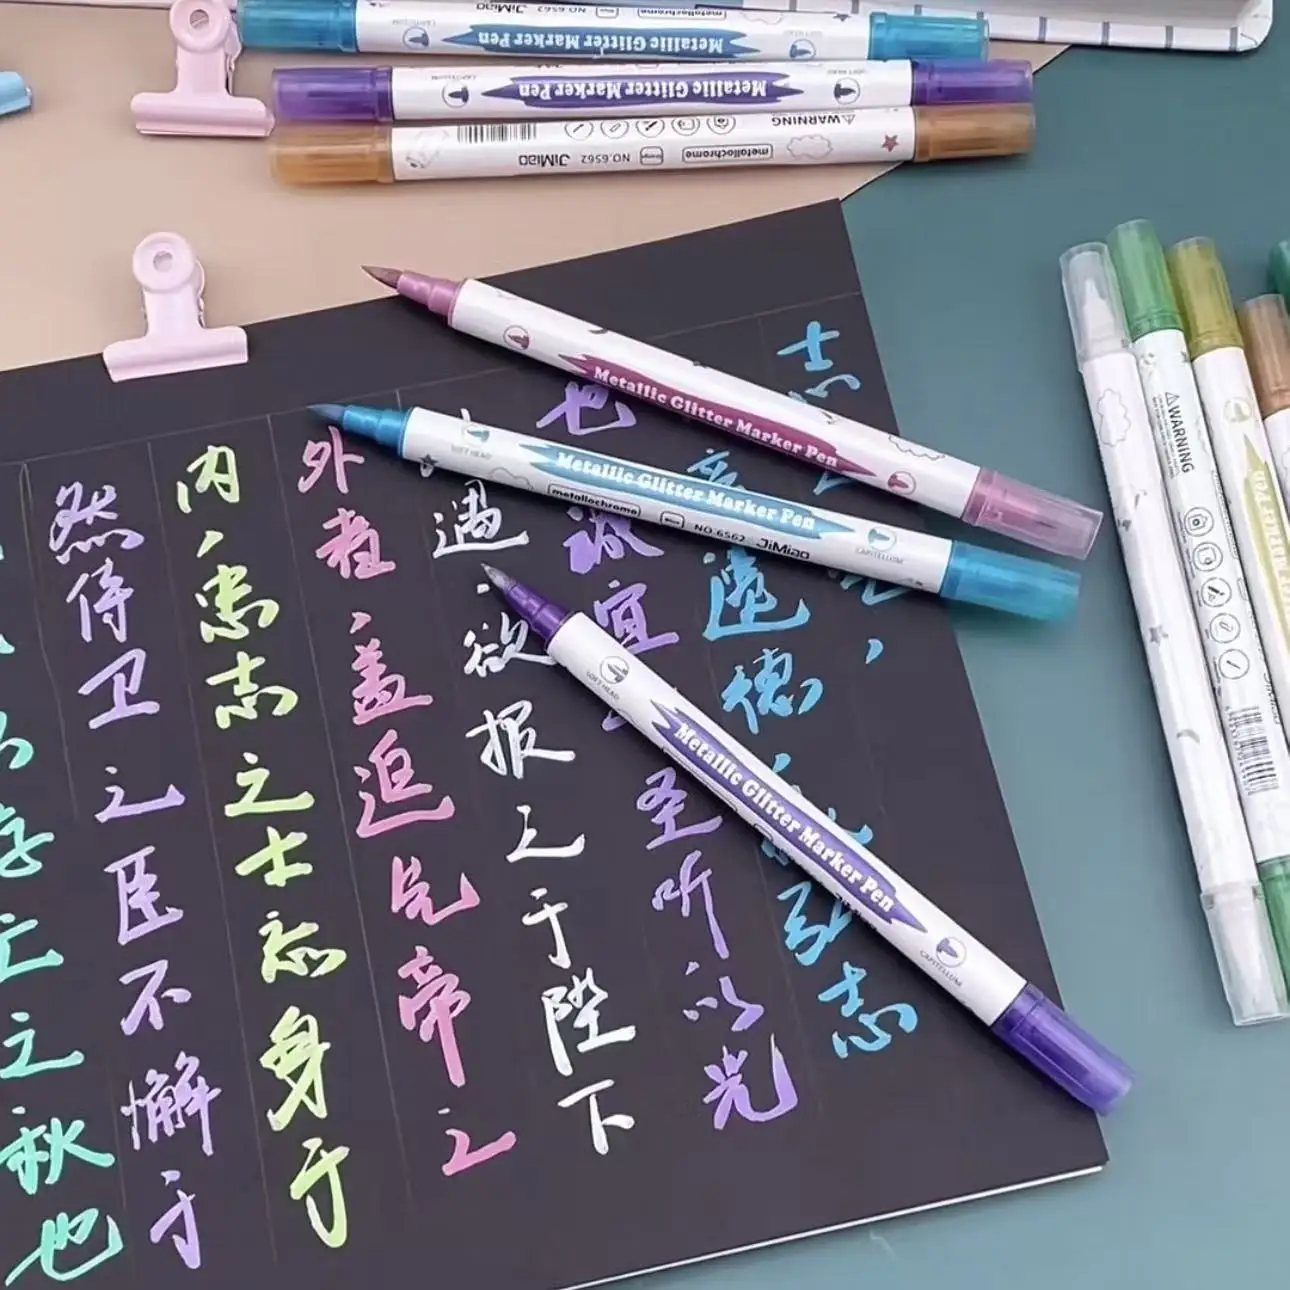 Metallic Glitter Marker Pen
NO.6562 JiMiao
metallochrome
CAPITELLUM
Metallic Glitter Marker Pen
CAPITELLUM
SOFT HEAD
WARNING
metallochrome
NO.6562 JiMiao
存亡之秋也
然侍卫之臣不懈于
内，忠志之士忘身于
外者，盖追先帝之
遇，欲报之于陛下
也
诚宜
圣听
以光
遗德，
弘志
Metallic Glitter Marker Pen
SOFT HEAD
Metallic Glitter Marker Pen
metallochrome
NO.6562 JiMiao
CAPITELLUM
SOFT HEAD
Metallic Glitter Marker Pen
CAPITELLUM
WARNING